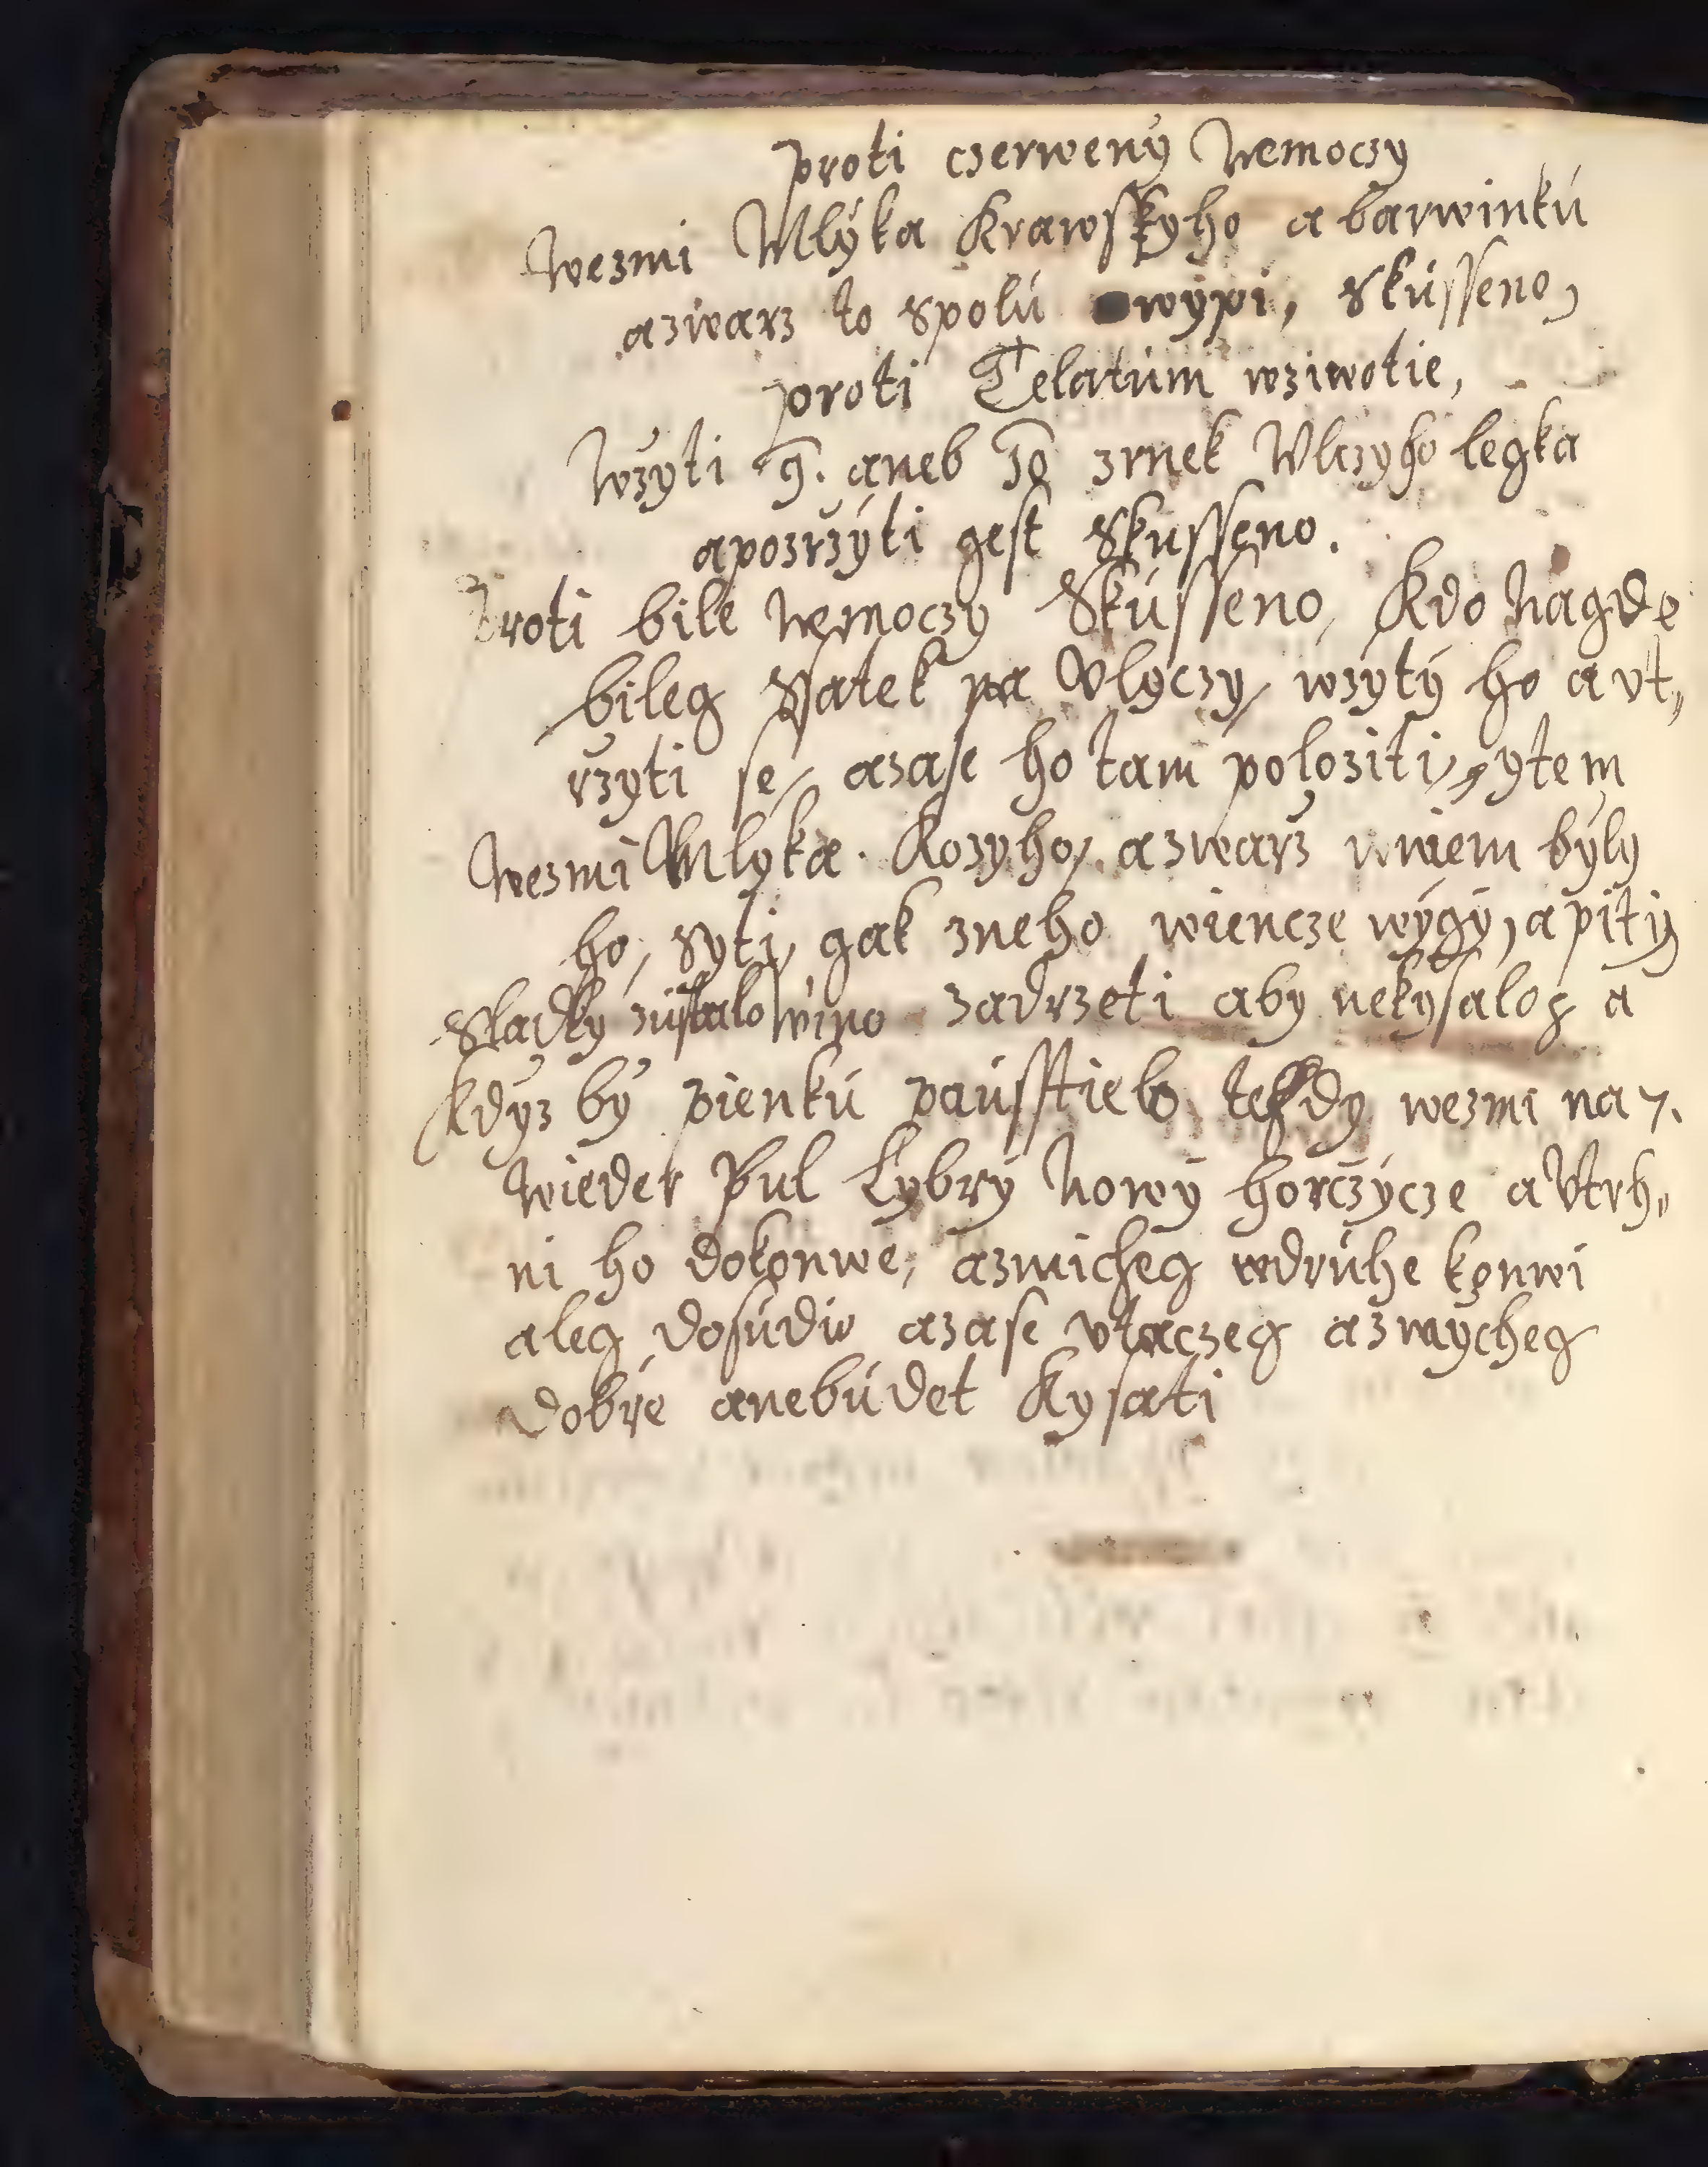 proti czerweny Nemoczy
Wezmi Mlýka Krawskyho a barwinkú
azwarz to spolú wýpi, Skússeno,
proti Telatúm wziwotie,
Wzyti 9. aneb 10 zrnek Vlczyho legka
apozrzýti gest Skusseno.
Proti bile Nemoczy Skússeno, Kdo Nagde
bileg ssatek na Vlyczy, wzýtý ho a vt„
rzyti se, azase ho tam položiti, ytem
Wezmi Mlyka Kozyho, azwarz wniem býly
ho, syti, gak zneho wiencze wýgý, a pitý
Sladký zústalo wino zadrzeti aby nekysalo, a
kdyz bý pienkú paússtielo tehdy wezmi na 7.
wieder Pul Lybrý Nowý horczýcze a Vtrh„
ni ho dokonwe, azmicheg wdrúhe konwi
aleg dosúdú azase vtaczeg azmýcheg
dobře anebúdet Kysati